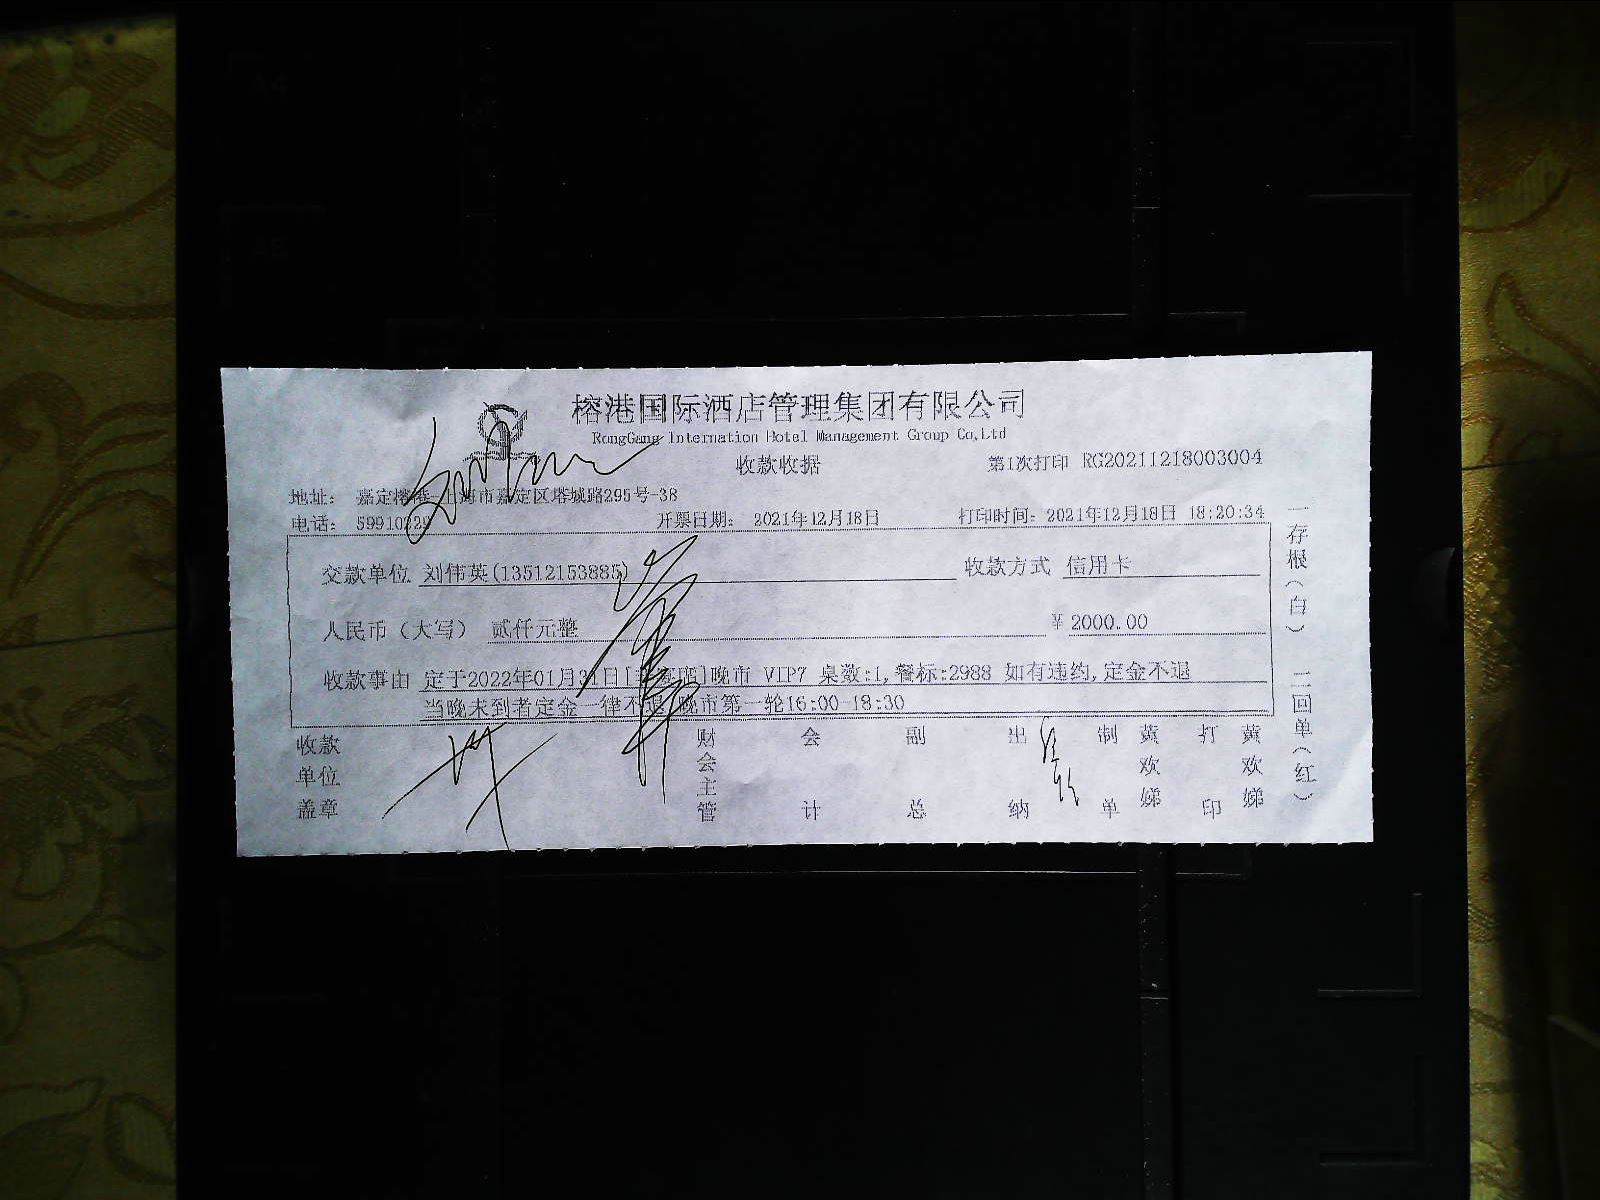 榕港国际酒店管理集团有限公司
RongGang Internation Hotel Management Group Co,Ltd
收款收据 第1次打印 RG20211218003004
地址: 嘉定榕港-上海市嘉定区塔城路295号-38
电话: 59910229 开票日期: 2021年12月18日 打印时间: 2021年12月18日 18:20:34
交款单位 刘伟英(13512153885) 收款方式 信用卡
人民币(大写) 贰仟元整 ¥ 2000.00
收款事由 定于2022年01月31日[ ]晚市 VIP7 桌数:1,餐标:2988 如有违约,定金不退
当晚未到者定金一律不退 晚市第一轮16:00-18:30
收款单位盖章 财会主管 会计 副总 出纳 制单 黄欢娣 打印 黄欢娣
一存根(白) 二回单(红)